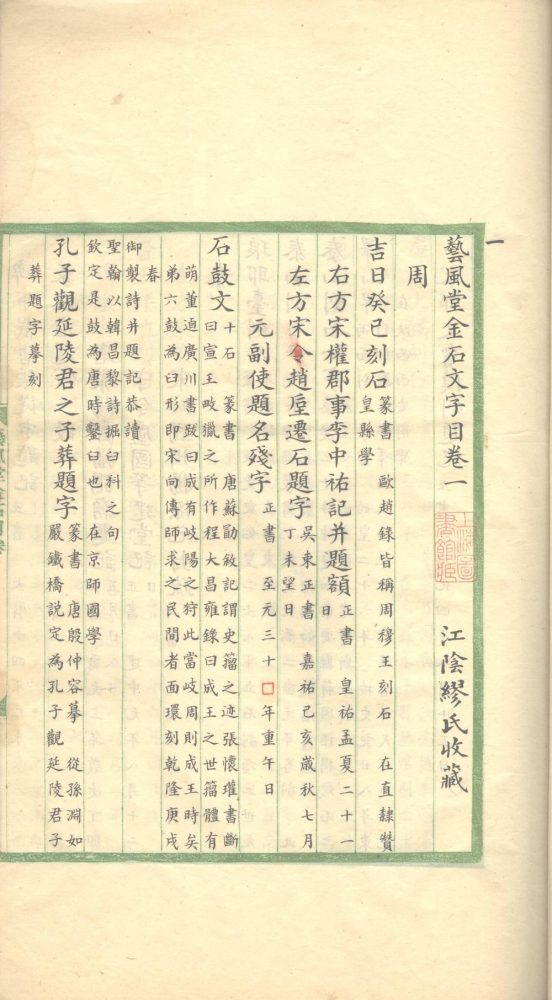 一
藝風堂金石文字目卷一 江陰繆氏收藏
上海圖
書館藏
周
吉日癸巳刻石 篆書 歐趙錄皆稱周穆王刻石 在直隸贊
皇縣學
右方宋權郡事李中祐記并題額 正書 皇祐孟夏二十一
日
左方宋令趙遷石題字 吳東正書 嘉祐己亥歲秋七月
丁未望日
元副使題名殘字 正書 至元三十□年重午日
石鼓文 十石 篆書 唐蘇勖敘記謂史籀之迹張懷瓘書斷
曰宣王畋獵之所作程大昌雍錄曰成王之世籀體有
萌董逌廣川書跋曰成有岐陽之狩此當岐周則成王時矣
弟六鼓為臼形即宋向傳師求之民間者面環刻乾隆庚戌
春
御製詩并題記恭讀
聖翰以韓昌黎詩掘臼科之句
欽定是鼓為唐時鑿臼也 在京師國學
孔子觀延陵君之子葬題字 篆書 唐殷仲容摹 從孫淵如
嚴鐵橋說定為孔子觀延陵君子
葬題字摹刻